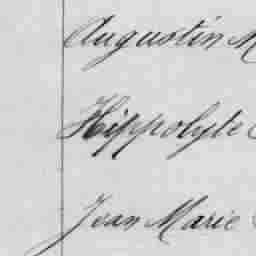 Augustin M
Hippolyte
Jean Marie